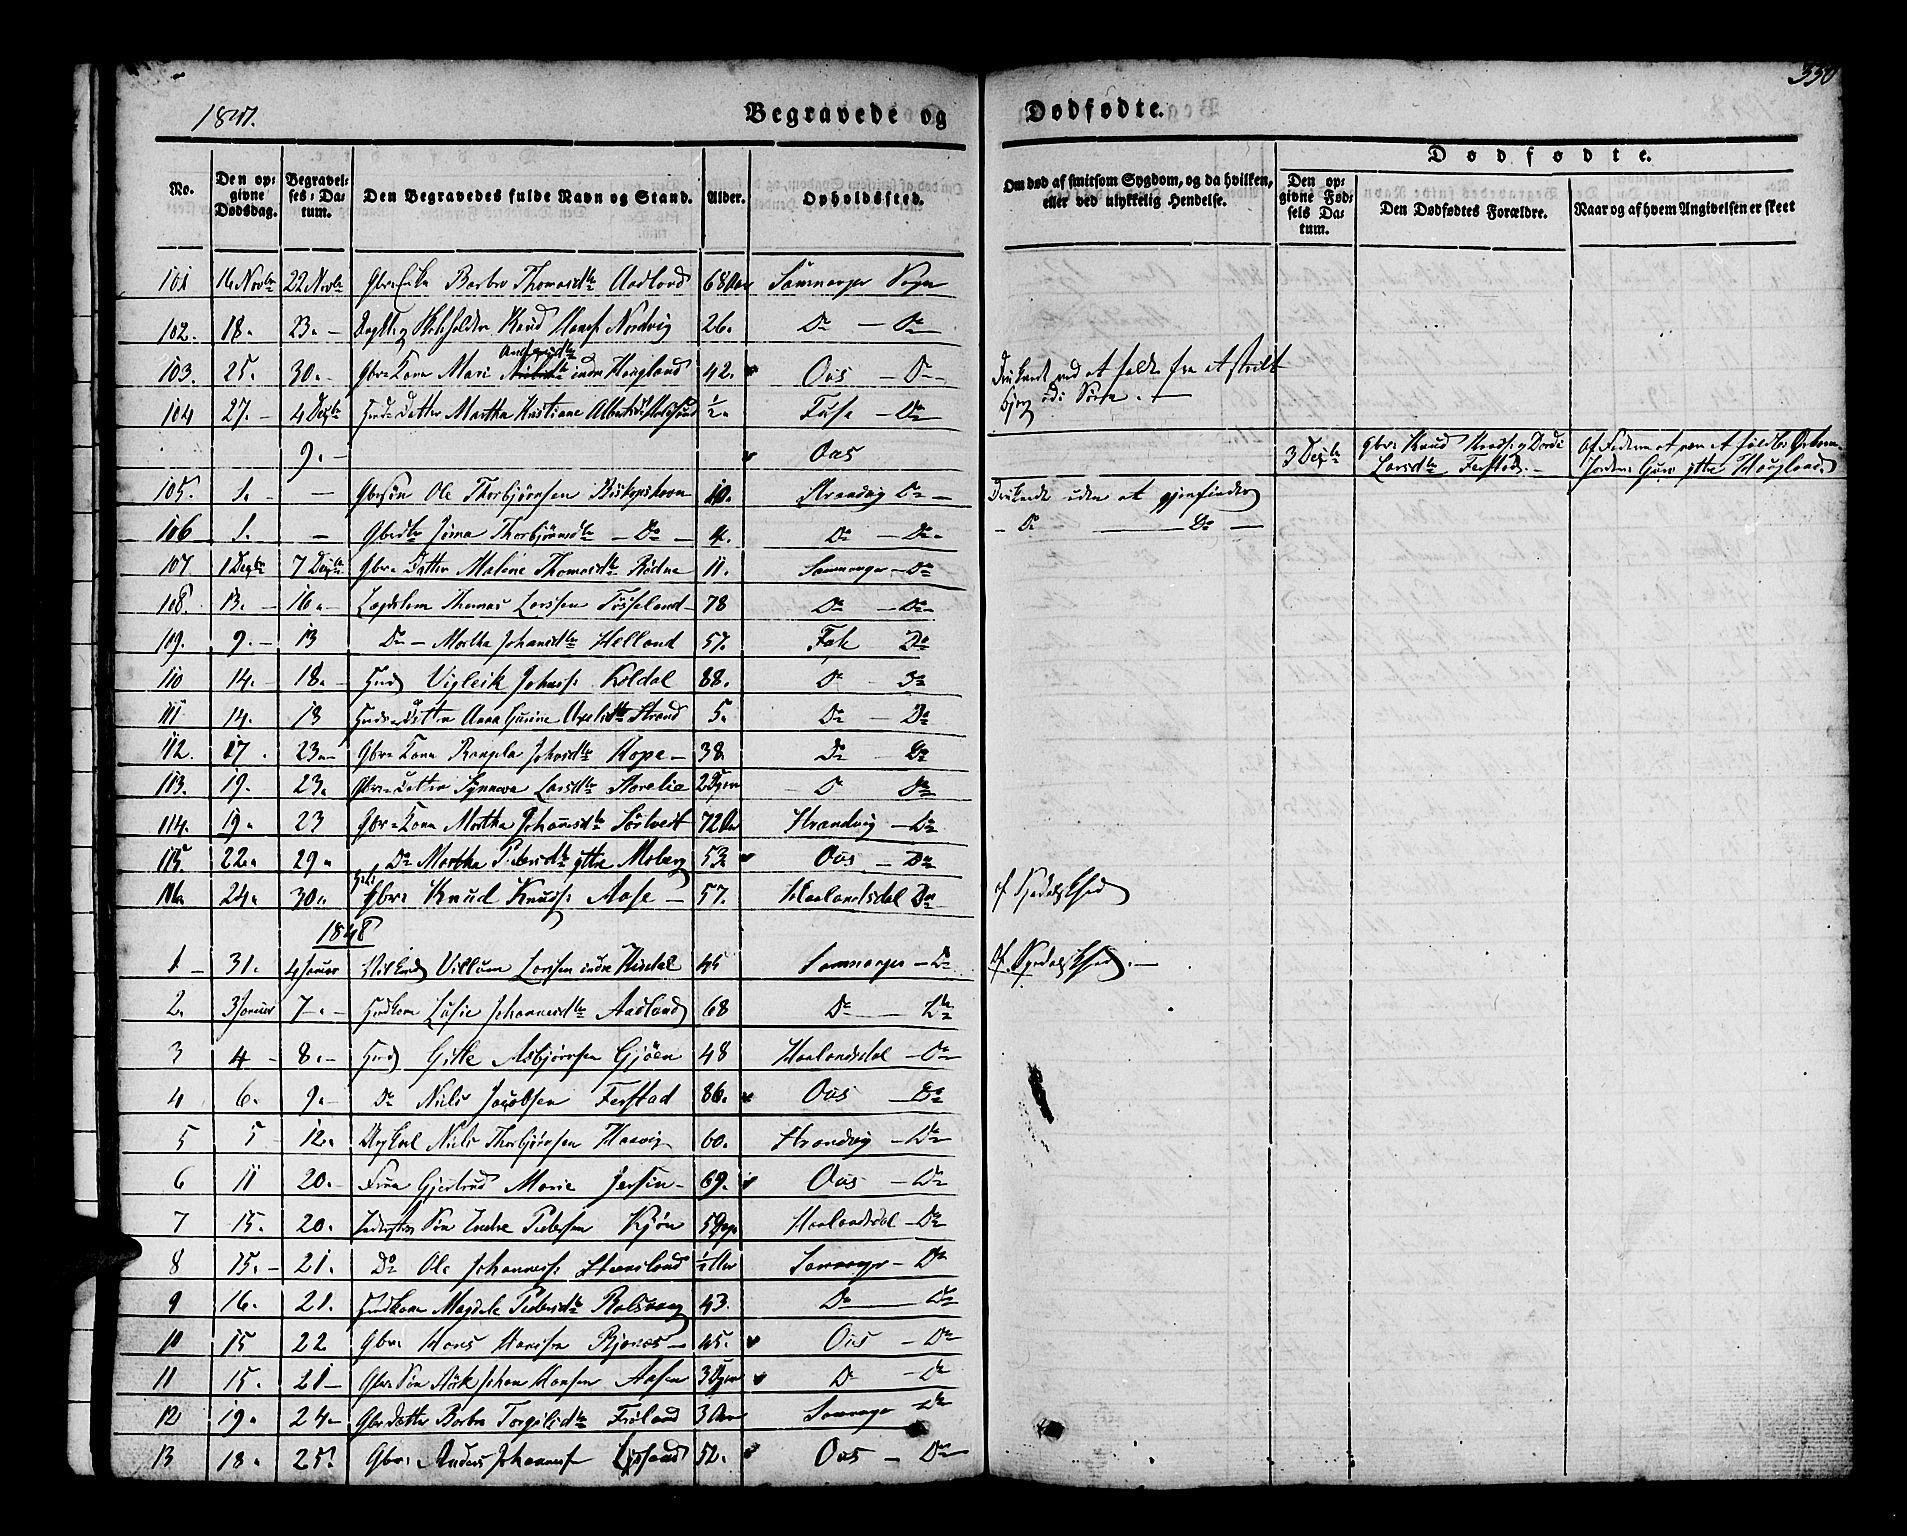 330
1847. Begravede og Dødfødte.
No. Den opgivne Dødsdag. Begravelses-Datum. Den Begravedes fulde Navn og Stand. Alder. Opholdssted. Om død af smitsom Sygdom, og da hvilken, eller ved ulykkelig Hendelse. Dødfødte. Den opgivne Fødsels Datum. Den Dødfødtes Forældre. Naar og af hvem Angivelsen er skeet
101 16 Novbr 22 Novbr Gbr: Enke Barbro Thomasdtr Aadland 68 Aar Samnanger Sogn
102. 18. 23. Knud Hansf Nordvig 26. Do - Do
103. 25. 30. Gbr: Kone Mari Andersdtr indre Hougland 42. Oos - Do Druknet ved at falde fra et steilt Bjerg
104 27. 4 Decbr Huusm: Datter Martha Kristiane 1/2 Fuse - Do
9. Oos 3 Decbr Gbr: Knud Knudsf og Dordi Larsdtr Ferstad. af Faderen
105. 1. - Gbr: Søn Ole Thorbjørnsen Biskopshavn 10. Strandvig Do Druknede uden at gjenfindes
106 1. - Gbr: dtr Thorbjørnsdtr - Do - 4. Do - Do - Do - Do
107 1 Decbr 7 Decbr Gbr: Datter Malene Thomasdtr Rødne 11. Samnanger - Do
108. 13. 16. Lægdslem Thomas Larssen Tøsseland 78 Do - Do
109. 9. 13 Do - Martha Johannesdtr Helland 57. Do
110 14. 18. Huusmd Vigleik Johnsf: Koldal 88. Do Do
111 14. 18 Huusm: Datter Anna Gurine Axelsdtr Strand 5. Do - Do
112. 17. 23. Gbr: Kone Rangela Johnsdtr Hope 38 Do Do
113. 19. 23. Gbr: Datter Synneva Larsdtr Do Do
114. 19. 23 Gbr: Kone Martha Johannesdtr Sørtveit 72 Aar Strandvig - Do
115. 22. 29. Do Martha Pedersdtr ytre Moberg 53 Oos - Do
116. 24. 30. Gbr: Knud Knudsf: Aase 57. Haalandsdal Do af Spedalskhed
1848
1 31. 4 Januar Villum Larssen indre 45 Samnanger - Do af Spedalskhed.
2. 3 Januar 7. Huuskone Lusie Johannesdtr Aadland 68 Do - Do
3 4 8. Huusmd Gitle Asbjørnsen Gjøen 48 Haalandsdal - Do
4 6. 9. Do Niels Jacobsen Ferstad 86. Oos Do
5 5 12. Niels Thorbjørnsen Haavig 60. Strandvig - Do
6 11 20. Frue Gjertrud Marie Jersin 69. Oos - Do
7 15. 20. Søn Endre Pedersen Kjøn Haalandsdal - Do
8 15. 21. Do Ole Johannesf: 1/2 Aar Samnanger - Do
9 16. 21. Huuskone Magdele Pedersdtr Rolsvaag 43. Do Do
10 15 22 Gbr: Hans Hansen Bjønæs 45. Oos - Do
11 15. 21 Gbr: Søn Johan Hansen Aasen Do - Do
12 19. 24. Gbr: Datter Barbro Torgilsdtr Frøland 3 Aar Samnanger Do
13 18. 25. Gbr: Anders Johannesf 52. Oos - Do